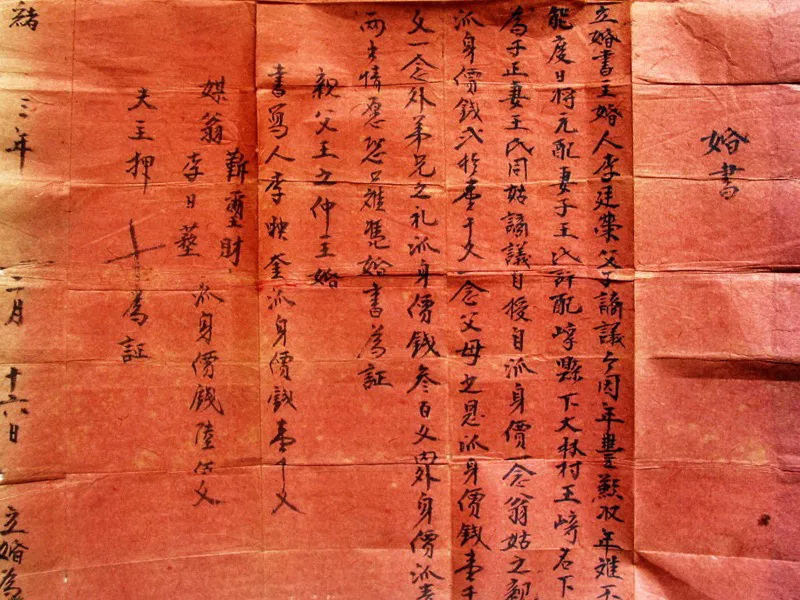 婚書
立婚書主婚人李廷榮父子謫議今因年豐歉收年难
能度日將元配妻子王氏許配崞縣下大林村王崎名下
為子正妻王氏同姑謫議自授自派身價一念翁姑之親
派身價钱弍拾壹千文念父母之恩派身價钱壹千
文一念外弟兄之礼派身價钱叁百文內外身價派
两出情愿恐口难凭婚書為証
親父王之仲主婚
書寫人李映奎派身價錢壹千文
媒翁 靳重財 李日藝 派身價錢陸佰文
夫主押 十 為証
緒 三年 二月 十六日 立婚為